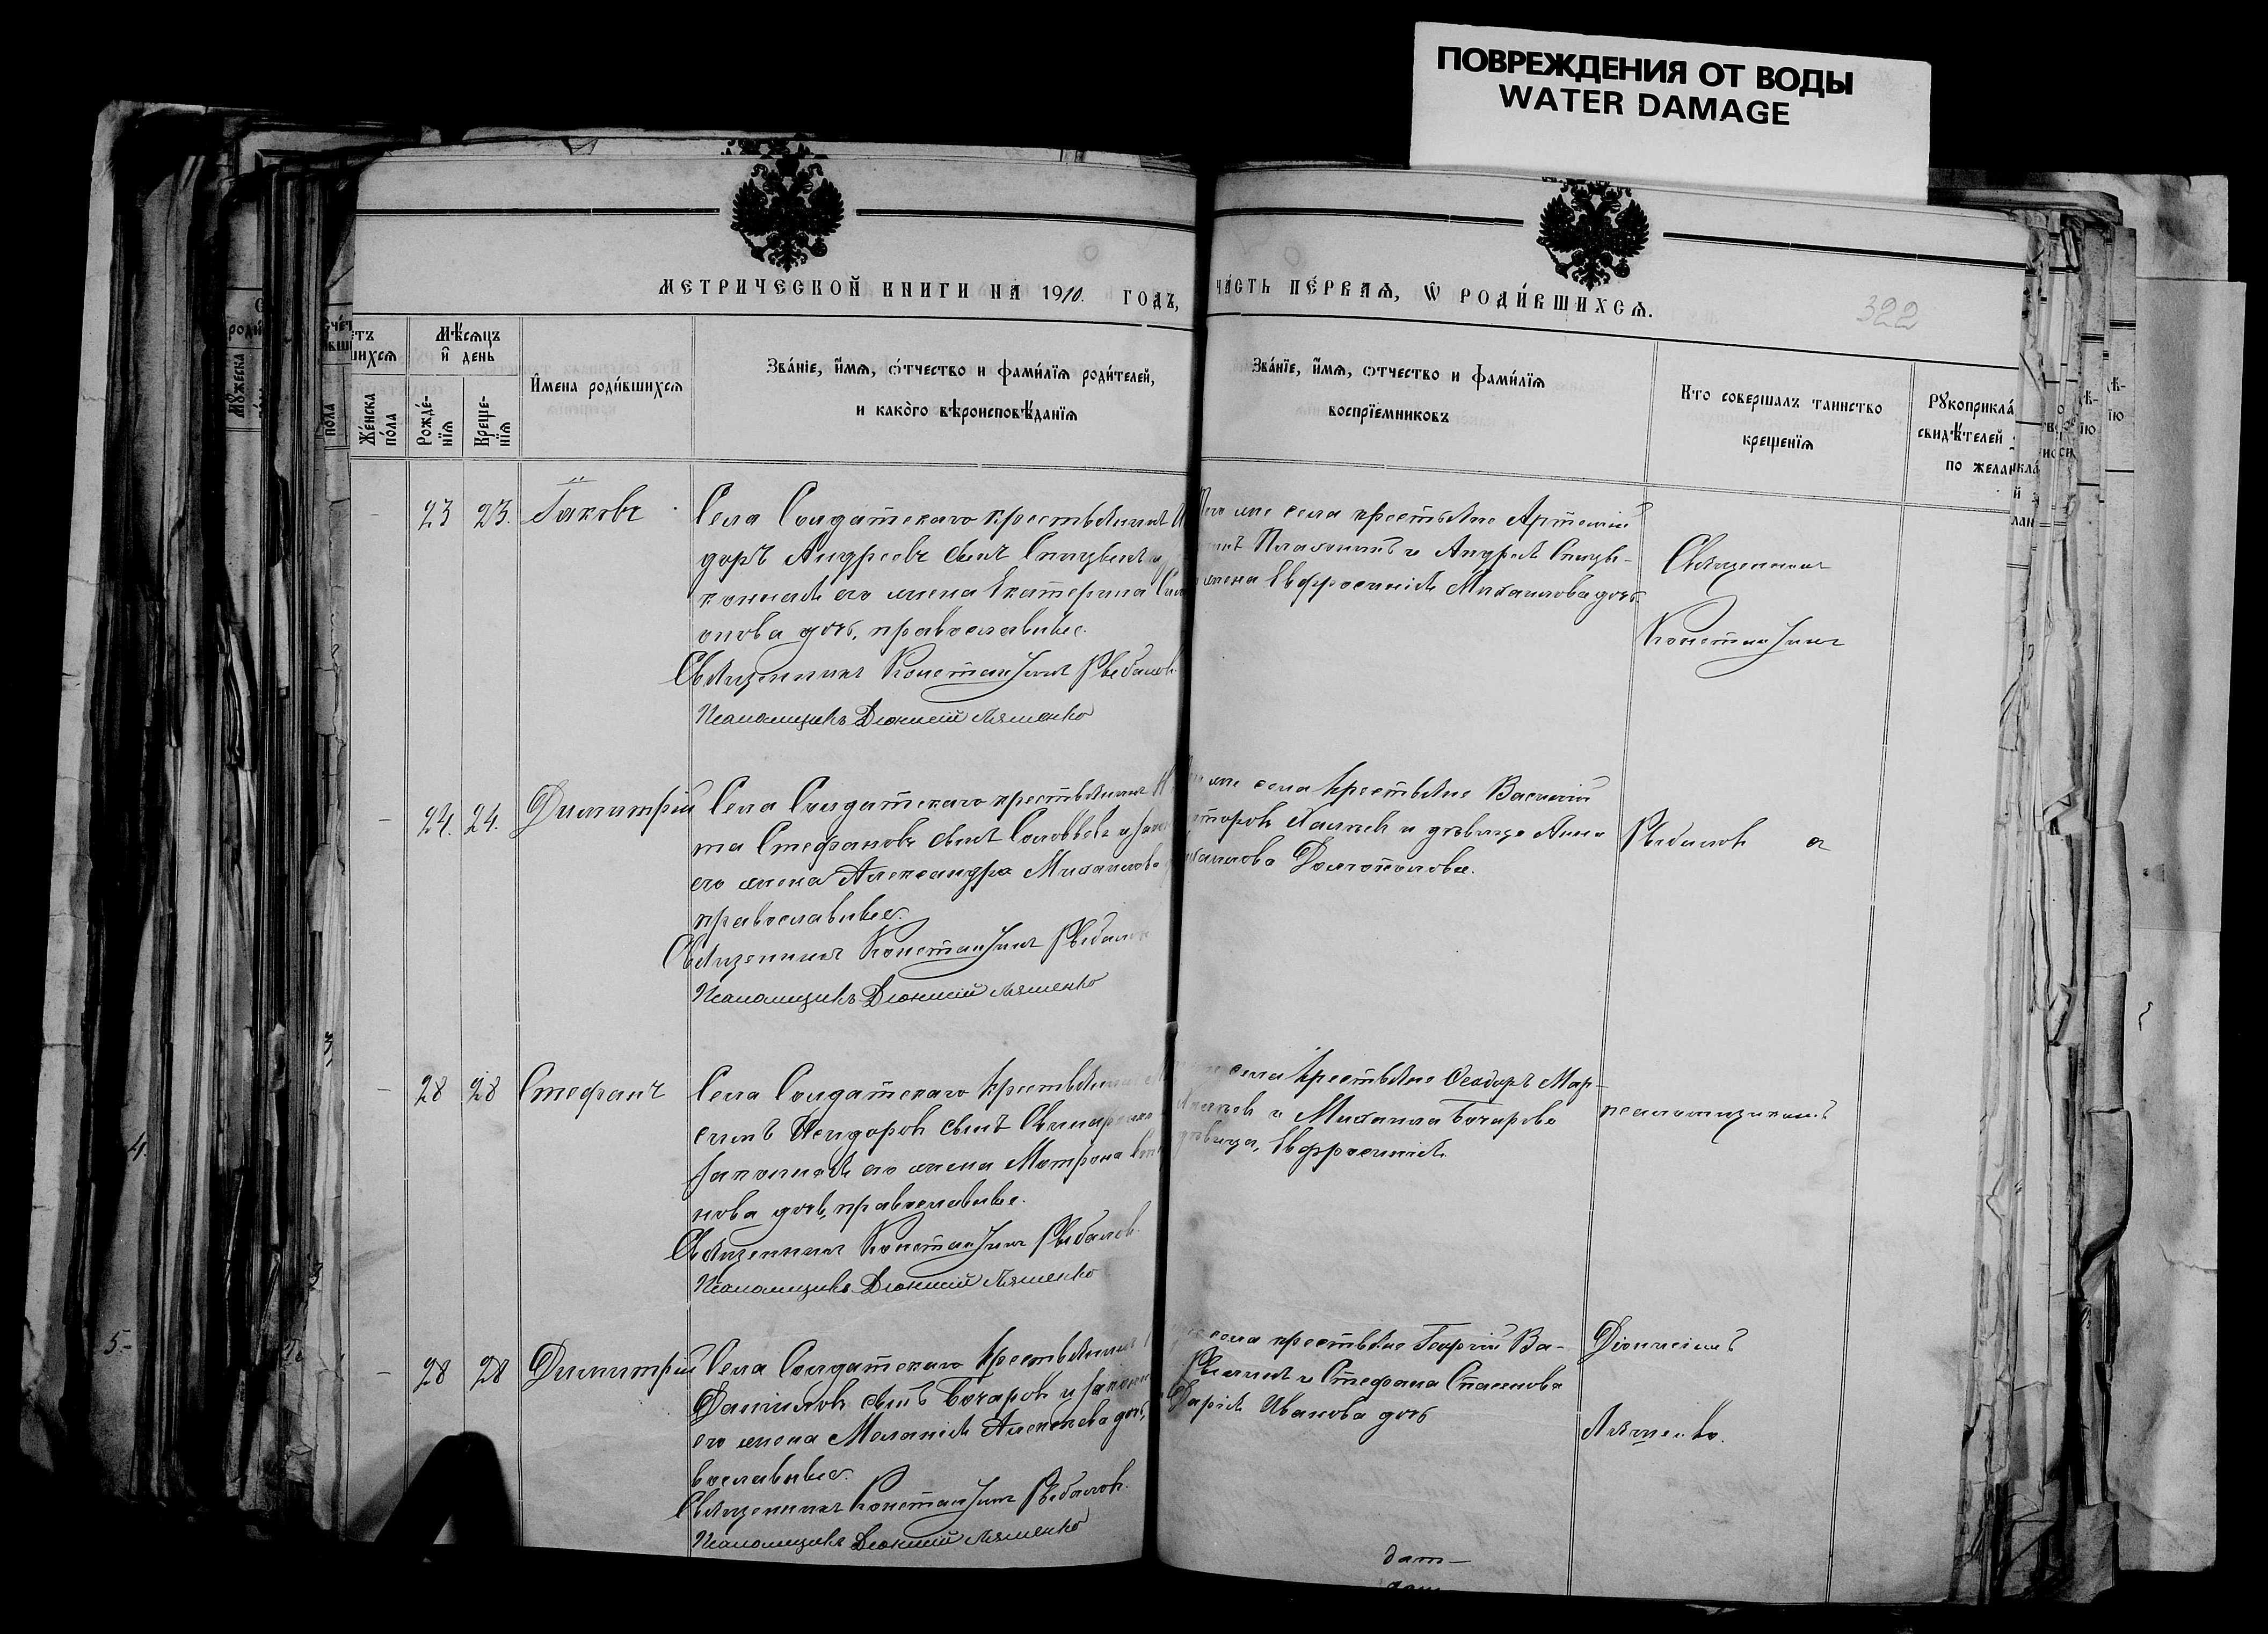 ПОВРЕЖДЕНИЯ ОТ ВОДЫ
WATER DAMAGE
МЕТРИЧЕСКОЙ КНИГИ НА 1910. ГОДЪ,
ЧА́СТЬ ПЕ́РВАѦ, Ѡ҆ РОДИ́ВШИХСѦ.
322
Мѣсѧцъ
и҆ день
Же́нска
по́ла
Рожде́-
нїѧ
Креще-
нїѧ
И҆мена роди́вшихсѧ
Зва́нїе, и҆́мѧ, ѻ҆́тчество и фами́лїѧ роди́телей,
и како́го вѣроисповѣ́данїѧ
Зва́нїе, и҆́мѧ, ѻ҆тчество и фами́лїѧ
воспрїемниковъ
Кто совершалъ таинство
крещенїѧ
Рꙋкоприкла́
свидѣ́телей
по жела
23 23. Іаковъ
Села Солдатскаго крестьянинъ
доръ Андреевъ сынъ Спицынъ и
коннaя его жена Екатерина
онова дочь, православные.
Священникъ Константинъ Рыбалов
Псаломщикъ Діонисій Ляшенко
того же села крестьяне Артемій
Платонинъ и Андрея Спицы-
жена Евфросинія Михаилова дочь
Священникъ
Константинъ
24. 24. Димитрій
Села Солдатскаго крестьянинъ
та Стефановъ сынъ Соловьевъ и зако
его жена Александра Михаилова
православные.
Священникъ Константинъ Рыбалов
Псаломщикъ Діонисій Ляшенко
же села крестьяне Василій
и дѣвица Анна
хаилова Долгополова.
Рыбалов съ
28 28 Стефанъ
Села Солдатскаго крестьянинъ
Исидоровъ сынъ Свинаренко
законная его жена Матрона
нова дочь, православные.
Священникъ Константинъ Рыбалов
Псаломщикъ Діонисій Ляшенко
села крестьяне Ѳеодоръ Мар-
и Михаила Бочарова
дѣвица, Евфросинія
псаломщикомъ
28 28 Димитрій
Села Солдатскаго крестьянинъ
Даніиловъ сынъ Бочаровъ и законн
его жена Меланія Алексѣева дочь,
вославные.
Священникъ Константинъ Рыбалов.
Псаломщикъ Діонисій Ляшенко
села крестьяне Георгій Ва-
и Стефана Спасенова
Дарія Иванова дочь
Діонисіемъ
Ляшенко.